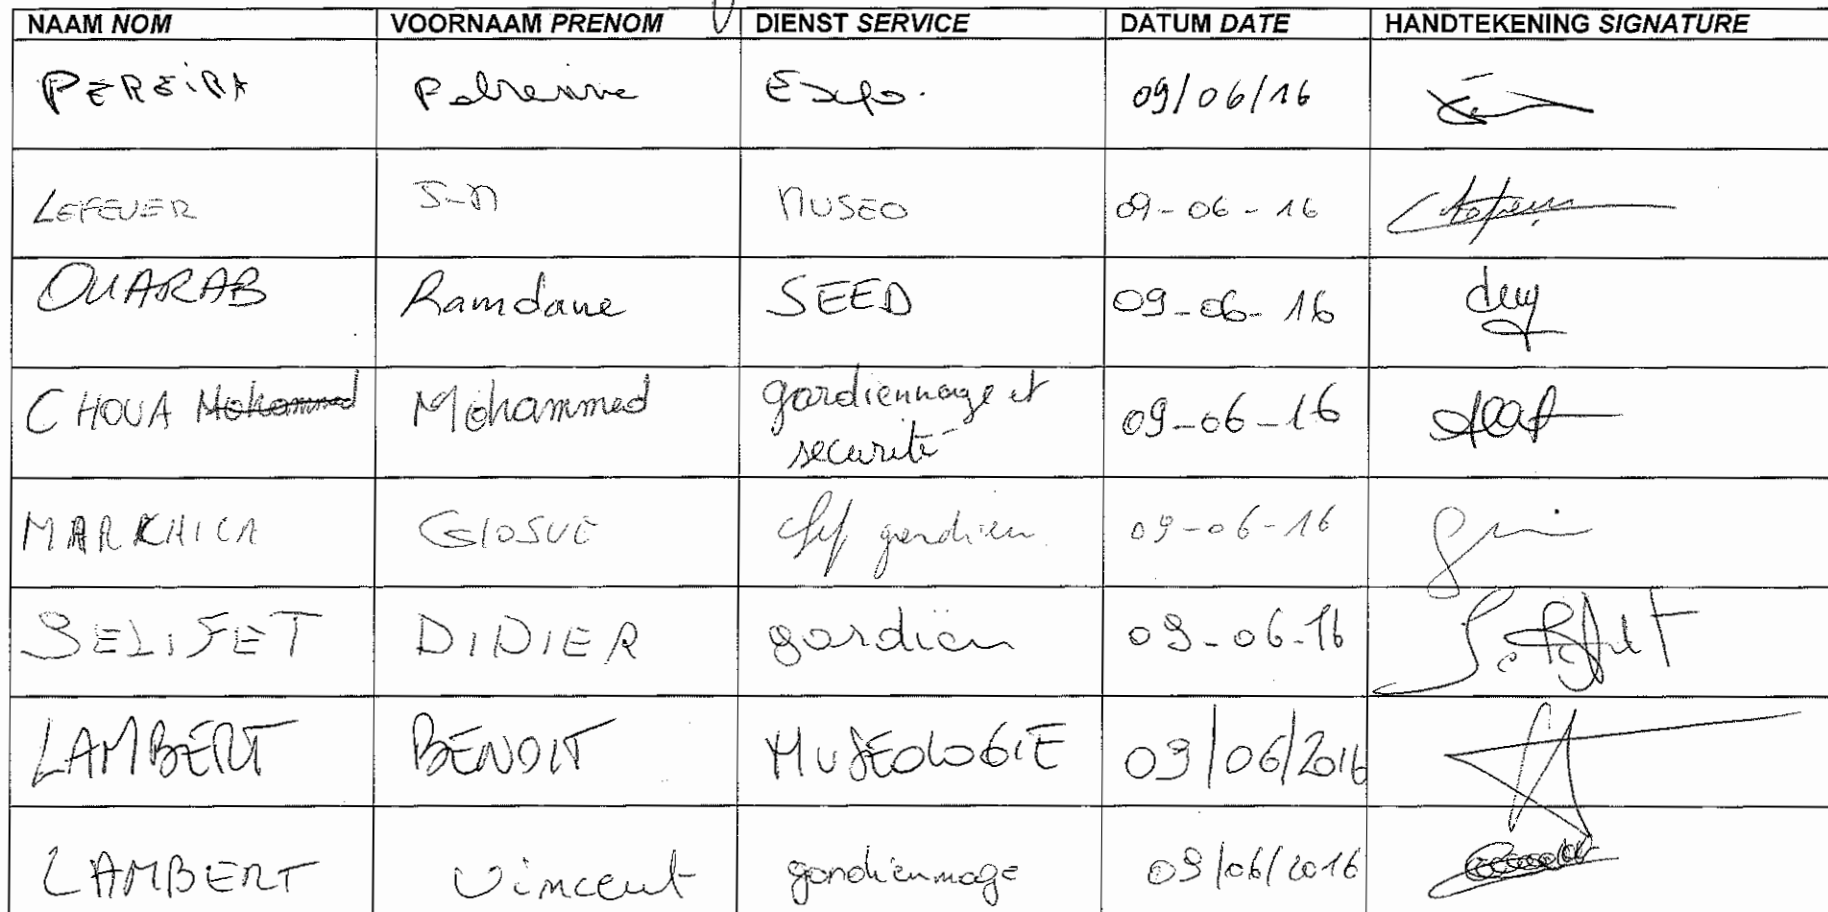 NAAM NOM VOORNAAM PRENOM DIENST SERVICE DATUM DATE HANDTEKENING SIGNATURE
PEREIRA Expo. 09/06/16
LEFEVER J-M MUSEO 09-06-16
OUARAB Ramdane SEED 09-06-16
CHOUA Mohammed Mohammed gardiennage et 09-06-16
securité
GIOSUE gardien 09-06-16
SELIFET DIDIER gardien 09-06-16
LAMBERT BENOIT MUSEOLOGIE 09/06/2016
LAMBERT Vincent gardiennage 09/06/2016